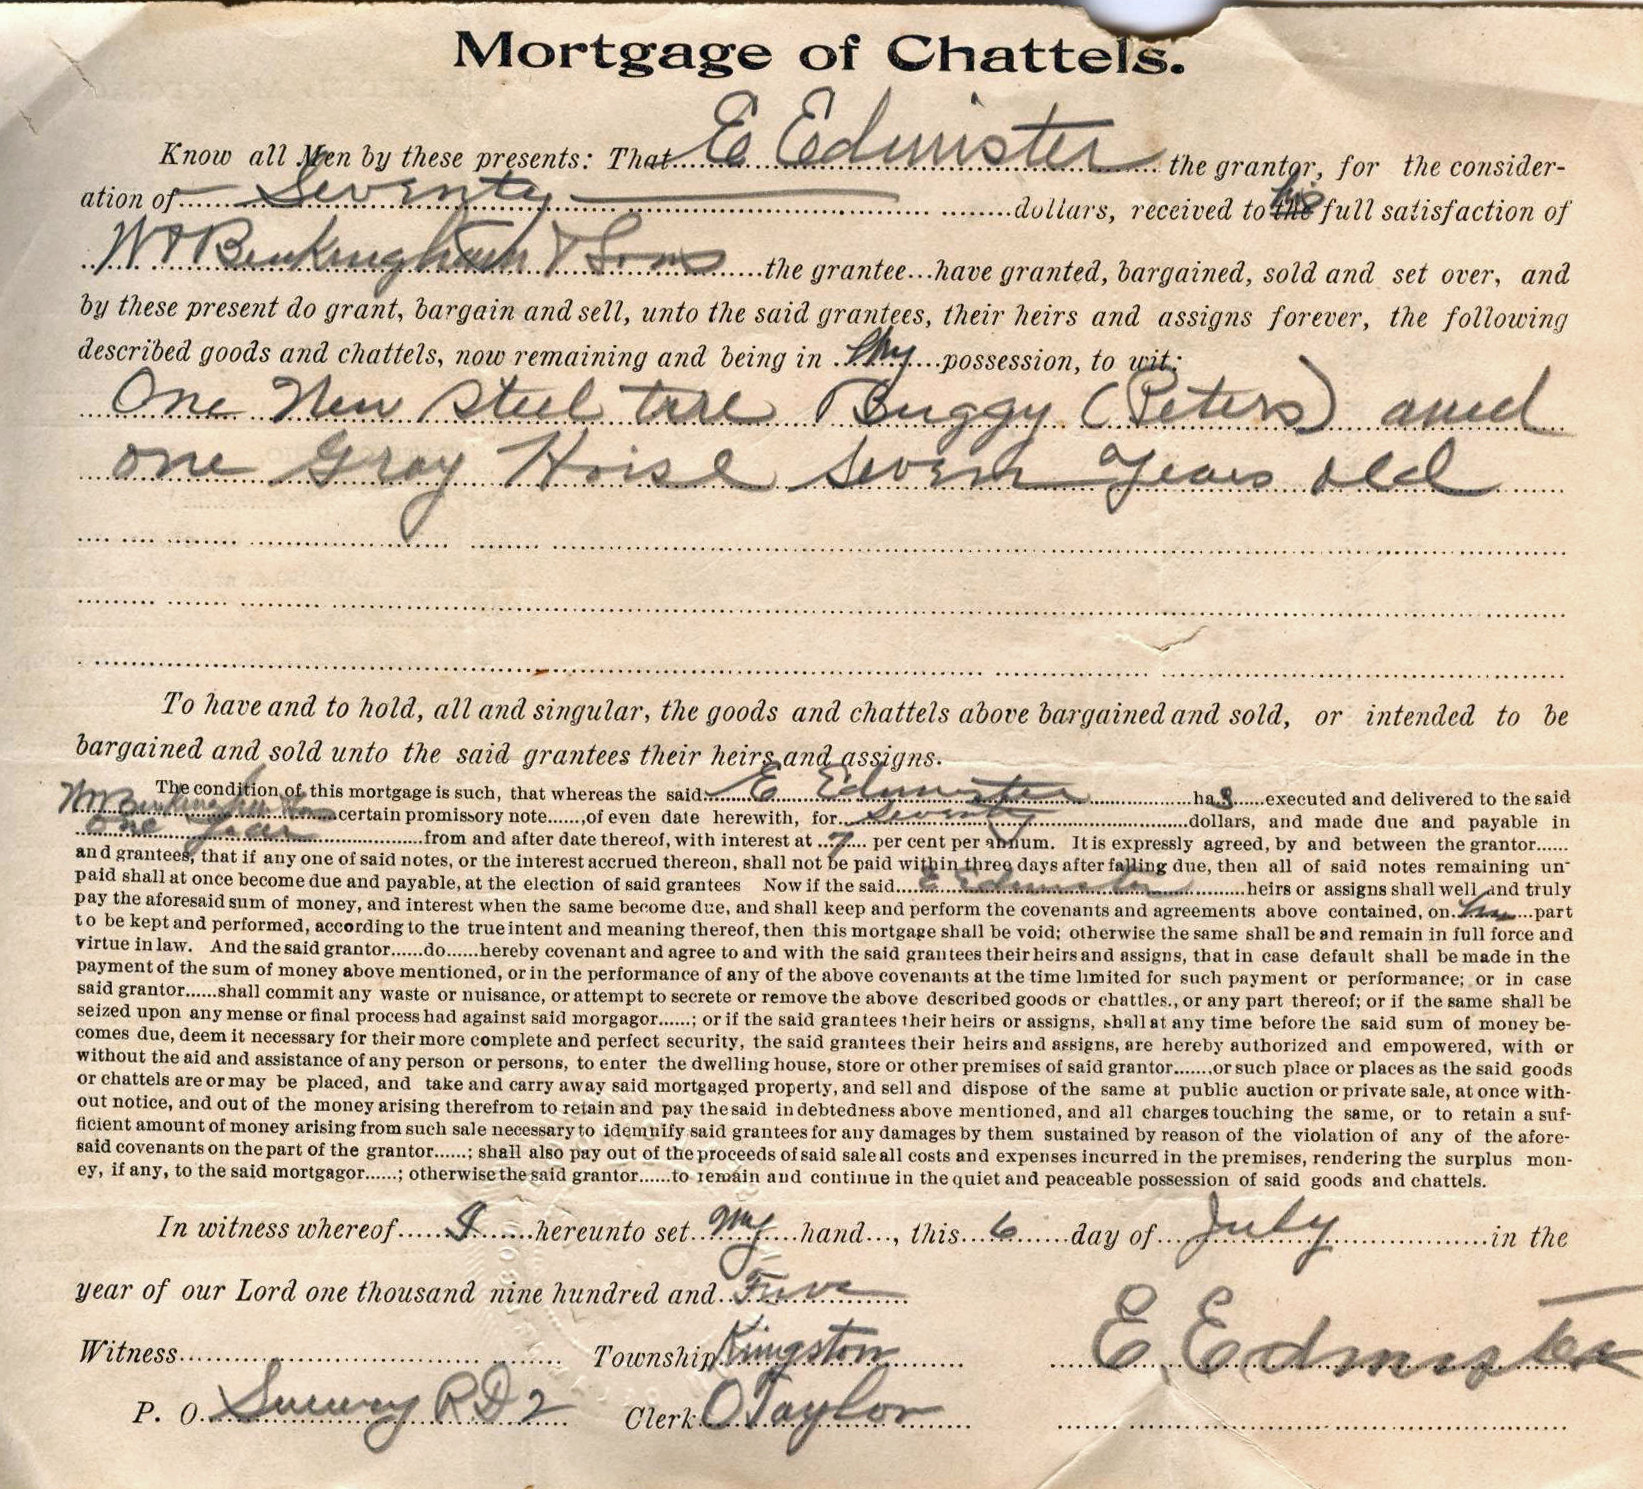 Mortgage of Chattels.
Know all Men by these presents: That E Edmister the grantor, for the consider-
ation of Seventy dollars, received to his full satisfaction of
Buckingham & Sons the grantee...have granted, bargained, sold and set over, and
by these present do grant, bargain and sell, unto the said grantees, their heirs and assigns forever, the following
described goods and chattels, now remaining and being in My possession, to wit:
One New Steel tire Buggy (Peters) and
one Gray Horse Seven Years old
To have and to hold, all and singular, the goods and chattels above bargained and sold, or intended to be
bargained and sold unto the said grantees their heirs and assigns.
The condition of this mortgage is such, that whereas the said E Edmister has executed and delivered to the said
Buckingham & Sons certain promissory note......,of even date herewith, for Seventy dollars, and made due and payable in
one Year from and after date thereof, with interest at 7 per cent per annum. It is expressly agreed, by and between the grantor......
and grantees, that if any one of said notes, or the interest accrued thereon, shall not be paid within three days after falling due, then all of said notes remaining un-
paid shall at once become due and payable, at the election of said grantees Now if the said E Edmister heirs or assigns shall well and truly
pay the aforesaid sum of money, and interest when the same become due, and shall keep and perform the covenants and agreements above contained, on part
to be kept and performed, according to the true intent and meaning thereof, then this mortgage shall be void; otherwise the same shall be and remain in full force and
virtue in law. And the said grantor......do......hereby covenant and agree to and with the said grantees their heirs and assigns, that in case default shall be made in the
payment of the sum of money above mentioned, or in the performance of any of the above covenants at the time limited for such payment or performance; or in case
said grantor......shall commit any waste or nuisance, or attempt to secrete or remove the above described goods or chattles., or any part thereof; or if the same shall be
seized upon any mense or final process had against said morgagor......; or if the said grantees their heirs or assigns, shall at any time before the said sum of money be-
comes due, deem it necessary for their more complete and perfect security, the said grantees their heirs and assigns, are hereby authorized and empowered, with or
without the aid and assistance of any person or persons, to enter the dwelling house, store or other premises of said grantor.......or such place or places as the said goods
or chattels are or may be placed, and take and carry away said mortgaged property, and sell and dispose of the same at public auction or private sale, at once with-
out notice, and out of the money arising therefrom to retain and pay the said indebtedness above mentioned, and all charges touching the same, or to retain a suf-
ficient amount of money arising from such sale necessary to idemnify said grantees for any damages by them sustained by reason of the violation of any of the afore-
said covenants on the part of the grantor......; shall also pay out of the proceeds of said sale all costs and expenses incurred in the premises, rendering the surplus mon-
ey, if any, to the said mortgagor......; otherwise the said grantor......to remain and continue in the quiet and peaceable possession of said goods and chattels.
In witness whereof I hereunto set My hand..., this 6 day of July in the
year of our Lord one thousand nine hundred and Five
Witness Township Kingston E. Edmister
P. O. Sunury R D 2 Clerk O Taylor